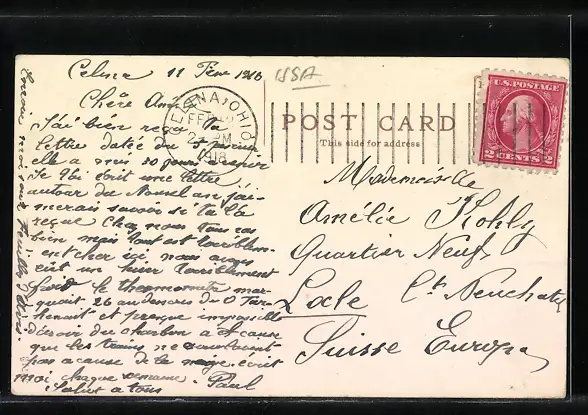 Celina 11 Fev 1918
USA
Chère Amie
J'ai bien reçu ta
lettre daté du
elle a mis 20 jours a venir
Je t'ai écrit une lettre
autour du Nouvel an j'ai-
merais savoir si tu la
reçue Chez nous tous va
bien mais tout est terriblem-
ent cher ici, nous avons
eut un hiver terriblement
froid le thermomètre mar-
quait 26 audesous du 0
et presque impossible
d'avoir du charbon a cause
que les trains ne
pas a cause de la neige. écrit
moi chaque semaine. Paul
Salut a tous
CELINA, OHIO
FEB 12
2 PM
1918
POST CARD
This side for address
U.S. POSTAGE
2 CENTS 2
Mademoiselle
Amélie Kohly
Quartier Neuf
Locle Ct. Neuchatel
Suisse Europe